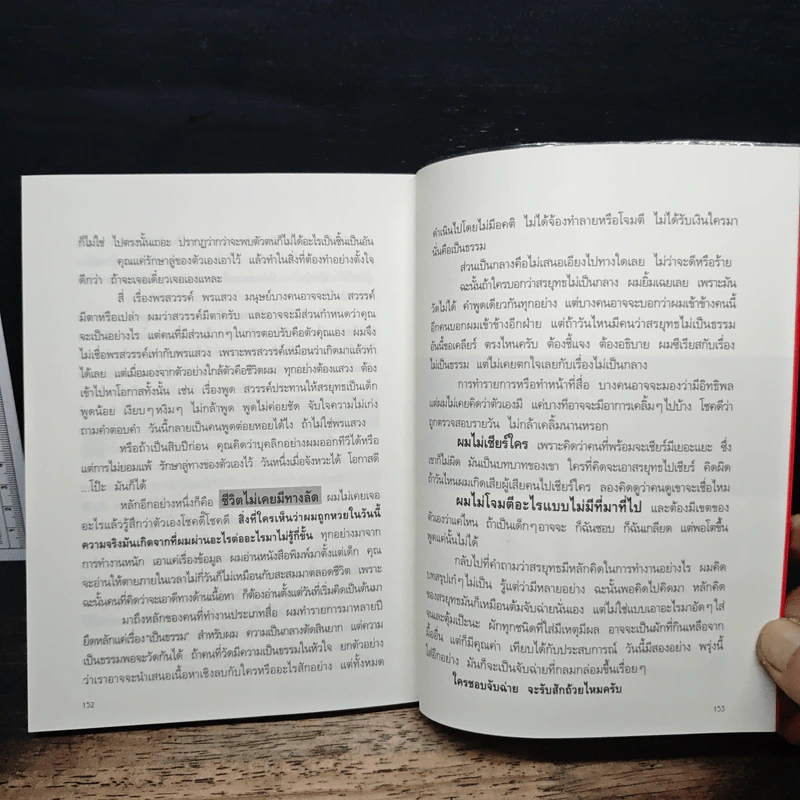 ก็ไม่ใช่ ไปตรงนั้นเถอะ ปรากฏว่ากว่าจะพบตัวตนก็ไม่ได้อะไรเป็นชิ้นเป็นอัน
คุณแค่รักษาลู่ของตัวเองเอาไว้ แล้วทำในสิ่งที่ต้องทำอย่างตั้งใจ
ดีกว่า ถ้าจะเจอเดี๋ยวเจอเองแหละ
สี่ เรื่องพรสวรรค์ พรแสวง มนุษย์บางคนอาจจะบ่น สวรรค์
มีตาหรือเปล่า ผมว่าสวรรค์มีตาครับ และอาจจะมีส่วนกำหนดว่าคุณ
จะเป็นอย่างไร แต่คนที่มีส่วนมากๆในการตอบรับคือตัวคุณเอง ผมจึง
ไม่เชื่อพรสวรรค์เท่ากับพรแสวง เพราะพรสวรรค์เหมือนว่าเกิดมาแล้วทำ
ได้เลย แต่เมื่อมองจากตัวอย่างใกล้ตัวคือชีวิตผม ทุกอย่างต้องแสวง ต้อง
เข้าไปหาโอกาสทั้งนั้น เช่น เรื่องพูด สวรรค์ประทานให้สรยุทธเป็นเด็ก
พูดน้อย เงียบๆหงิมๆ ไม่กล้าพูด พูดไม่ค่อยชัด จับใจความไม่เก่ง
ถามคำตอบคำ วันนี้กลายเป็นคนพูดต่อยหอยได้ไง ถ้าไม่ใช่พรแสวง
หรือถ้าเป็นสิบปีก่อน คุณคิดว่าบุคลิกอย่างผมออกทีวีได้หรือ
แต่การไม่ยอมแพ้ รักษาลู่ทางของตัวเองไว้ วันหนึ่งเมื่อจังหวะได้ โอกาสดี
...โป๊ะ มันก็ได้
หลักอีกอย่างหนึ่งก็คือ ชีวิตไม่เคยมีทางลัด ผมไม่เคยเจอ
อะไรแล้วรู้สึกว่าตัวเองโชคดีโชคดี สิ่งที่ใครเห็นว่าผมถูกหวยในวันนี้
ความจริงมันเกิดจากที่ผมผ่านอะไรต่ออะไรมาไม่รู้กี่ขั้น ทุกอย่างมาจาก
การทำงานหนัก เอาแค่เรื่องข้อมูล ผมอ่านหนังสือพิมพ์มาตั้งแต่เด็ก คุณ
จะอ่านให้ตายภายในเวลาไม่กี่วันก็ไม่เหมือนกับสะสมมาตลอดชีวิต เพราะ
ฉะนั้นคนที่คิดว่าจะเอาดีทางด้านเนื้อหา ก็ต้องอ่านตั้งแต่วันที่เริ่มคิดเป็นต้นมา
มาถึงหลักของคนที่ทำงานประเภทสื่อ ผมทำรายการมาหลายปี
ยึดหลักแค่เรื่อง"เป็นธรรม" สำหรับผม ความเป็นกลางตัดสินยาก แต่ความ
เป็นธรรมพอจะวัดกันได้ ถ้าคนที่วัดมีความเป็นธรรมในหัวใจ ยกตัวอย่าง
ว่าเราอาจจะนำเสนอเนื้อหาเชิงลบกับใครหรืออะไรสักอย่าง แต่ทั้งหมด
152
ดำเนินไปโดยไม่มีอคติ ไม่ได้จ้องทำลายหรือโจมตี ไม่ได้รับเงินใครมา
นั่นคือเป็นธรรม
ส่วนเป็นกลางคือไม่เสนอเอียงไปทางใดเลย ไม่ว่าจะดีหรือร้าย
ฉะนั้นถ้าใครบอกว่าสรยุทธไม่เป็นกลาง ผมยิ้มเฉยเลย เพราะมัน
วัดไม่ได้ คำพูดเดียวกันทุกอย่าง แต่บางคนอาจจะบอกว่าผมเข้าข้างคนนี้
อีกคนบอกผมเข้าข้างอีกฝ่าย แต่ถ้าวันไหนมีคนว่าสรยุทธไม่เป็นธรรม
อันนี้ขอเคลียร์ ตรงไหนครับ ต้องชี้แจง ต้องอธิบาย ผมซีเรียสกับเรื่อง
ไม่เป็นธรรม แต่ไม่เคยตกใจเลยกับเรื่องไม่เป็นกลาง
การทำรายการหรือทำหน้าที่สื่อ บางคนอาจจะมองว่ามีอิทธิพล
แต่ผมไม่เคยคิดว่าตัวเองมี แค่บางทีอาจจะมีอาการเคลิ้มๆไปบ้าง โชคดีว่า
ถูกตรวจสอบรายวัน ไม่กล้าเคลิ้มนานหรอก
ผมไม่เชียร์ใคร เพราะคิดว่าคนที่พร้อมจะเชียร์มีเยอะแยะ ซึ่ง
เขาก็ไม่ผิด มันเป็นบทบาทของเขา ใครที่คิดจะเอาสรยุทธไปเชียร์ คิดผิด
ถ้าวันไหนผมเกิดเสียผู้เสียคนไปเชียร์ใคร ลองคิดดูว่าคนดูเขาจะเชื่อไหม
ผมไม่โจมตีอะไรแบบไม่มีที่มาที่ไป และต้องมีเขตของ
ตัวเองว่าแค่ไหน ถ้าเป็นเด็กๆอาจจะ ก็ฉันชอบ ก็ฉันเกลียด แต่พอโตขึ้น
พูดแค่นั้นไม่ได้
กลับไปที่คำถามว่าสรยุทธมีหลักคิดในการทำงานอย่างไร ผมคิด
บทสรุปเก๋ๆไม่เป็น รู้แต่ว่ามีหลายอย่าง ฉะนั้นพอคิดไปคิดมา หลักคิด
ของสรยุทธมันก็เหมือนต้มจับฉ่ายนั่นเอง แต่ไม่ใช่แบบเอาอะไรมาอัดๆใส่
จนเละตุ้มเป๊ะนะ ผักทุกชนิดที่ใส่มีเหตุมีผล อาจจะเป็นผักที่กินเหลือจาก
มื้ออื่น แต่ก็มีคุณค่า เทียบได้กับประสบการณ์ วันนี้มีสองอย่าง พรุ่งนี้
ใส่อีกอย่าง มันก็จะเป็นจับฉ่ายที่กลมกล่อมขึ้นเรื่อยๆ
ใครชอบจับฉ่าย จะรับสักถ้วยไหมครับ
153